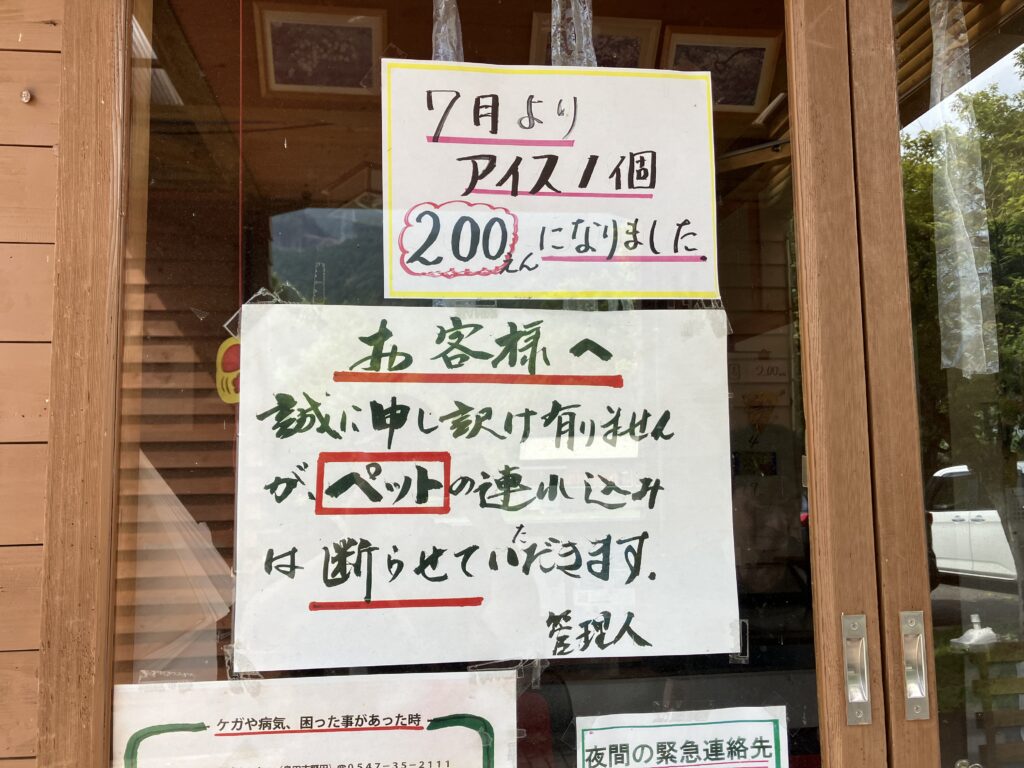 7月より
アイス1個
200えんになりました.
お客様へ
誠に申し訳け有りません
が、ペットの連れ込み
は断らせていただきます.
管理人
ケガや病気、困った事があった時
0547-35-2111
夜間の緊急連絡先